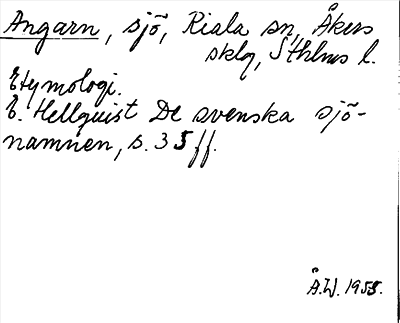 Angarn, sjö, Riala sn, Åkers
sklg, Sthlms l.
Etymologi.
E. Hellquist De svenska sjö-
namnen, s. 35 ff.
Å.W. 1955.